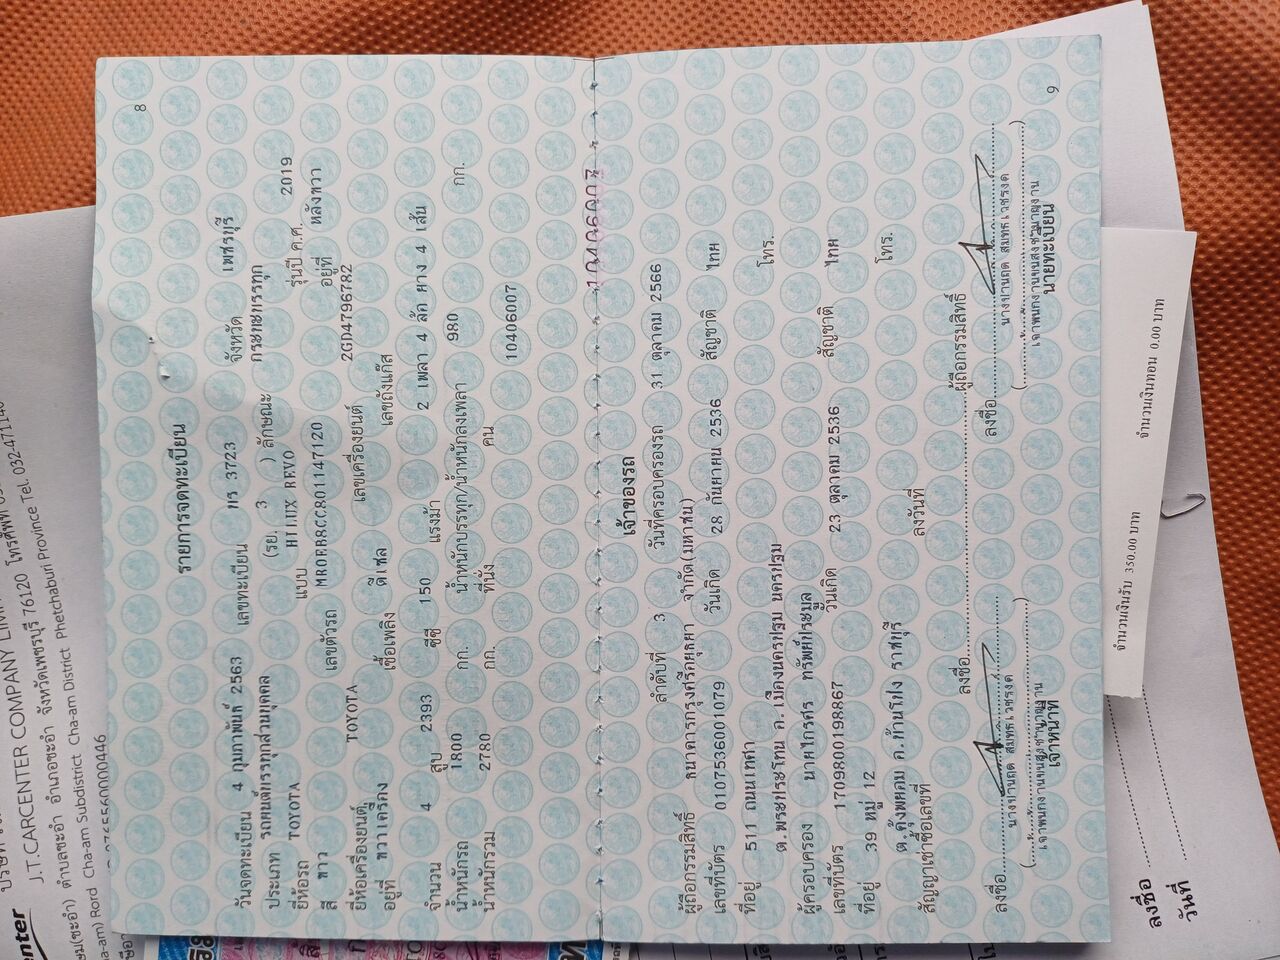 8
รายการจดทะเบียน
วันจดทะเบียน 4 กุมภาพันธ์ 2563 เลขทะเบียน 3723 จังหวัด เพชรบุรี
ประเภท รถยนต์บรรทุกส่วนบุคคล (รย. 3 ) ลักษณะ กระบะบรรทุก
ยี่ห้อรถ TOYOTA แบบ HILUX REVO รุ่นปี ค.ศ. 2019
สี ขาว เลขตัวรถ MR0EB8CC801147120 อยู่ที่ หลังขวา
ยี่ห้อเครื่องยนต์ TOYOTA เลขเครื่องยนต์ 2GD4796782
อยู่ที่ ขวาเครื่อง เชื้อเพลิง ดีเซล เลขถังแก๊ส
จำนวน 4 สูบ 2393 ซีซี 150 แรงม้า 2 เพลา 4 ล้อ ยาง 4 เส้น
น้ำหนักรถ 1800 กก. น้ำหนักบรรทุก/น้ำหนักลงเพลา 980 กก.
น้ำหนักรวม 2780 กก. ที่นั่ง คน
10406007
10406007
เจ้าของรถ
ลำดับที่ 3 วันที่ครอบครองรถ 31 ตุลาคม 2566
ผู้ถือกรรมสิทธิ์ ธนาคารกรุงศรีอยุธยา จำกัด(มหาชน)
เลขที่บัตร 0107536001079 วันเกิด 28 กันยายน 2536 สัญชาติ ไทย
ที่อยู่ 511 ถนนเทศา
ต.พระประโทน อ.เมืองนครปฐม นครปฐม โทร.
ผู้ครอบครอง นายไกรศร ทรัพย์ประมูล
เลขที่บัตร 1709800198867 วันเกิด 23 ตุลาคม 2536 สัญชาติ ไทย
ที่อยู่ 39 หมู่ 12
อ.บ้านโป่ง ราชบุรี โทร.
สัญญาเช่าซื้อเลขที่ ลงวันที่
ลงชื่อ ผู้ถือกรรมสิทธิ์
ลงชื่อ ลงชื่อ
เจ้าพนักงานขนส่งชำนาญงาน เจ้าพนักงานขนส่งชำนาญงาน
เจ้าหน้าที่ นายทะเบียน
9
จำนวนเงินรับ 350.00 บาท จำนวนเงินทอน 0.00 บาท
ลงชื่อ
วันที่
enter
J.T.CARCENTER COMPANY
ตำบลชะอำ อำเภอชะอำ จังหวัดเพชรบุรี 76120 โทรศัพท์
Cha-am Subdistrict Cha-am District Phetchaburi Province Tel. 032-47114